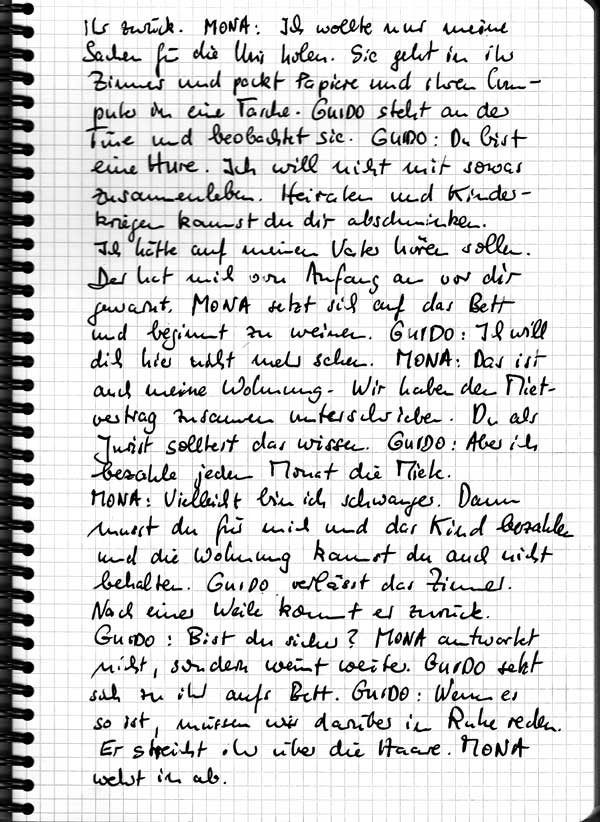 ihr zurück. MONA: Ich wollte nur meine
Sachen für die Uni holen. Sie geht in ihr
Zimmer und packt Papiere und ihren Com-
puter in eine Tasche. GUIDO steht an der
Türe und beobachtet sie. GUIDO: Du bist
eine Hure. Ich will nicht mit sowas
zusammenleben. Heiraten und Kinder-
kriegen kannst du dir abschminken.
Ich hätte auf meinen Vater hören sollen.
Der hat mich von Anfang an vor dir
gewarnt. MONA setzt sich auf das Bett
und beginnt zu weinen. GUIDO: Ich will
dich hier nicht mehr sehen. MONA: Das ist
auch meine Wohnung. Wir haben den Miet-
vertrag zusammen unterschrieben. Du als
Jurist solltest das wissen. GUIDO: Aber ich
bezahle jeden Monat die Miete.
MONA: Vielleicht bin ich schwanger. Dann
musst du für mich und das Kind bezahlen
und die Wohnung kannst du auch nicht
behalten. GUIDO verlässt das Zimmer.
Nach einer Weile kommt er zurück.
GUIDO: Bist du sicher? MONA antwortet
nicht, sondern weint weiter. GUIDO setzt
sich zu ihr aufs Bett. GUIDO: Wenn es
so ist, müssen wir darüber in Ruhe reden.
Er streicht ihr über die Haare. MONA
wehrt ihn ab.